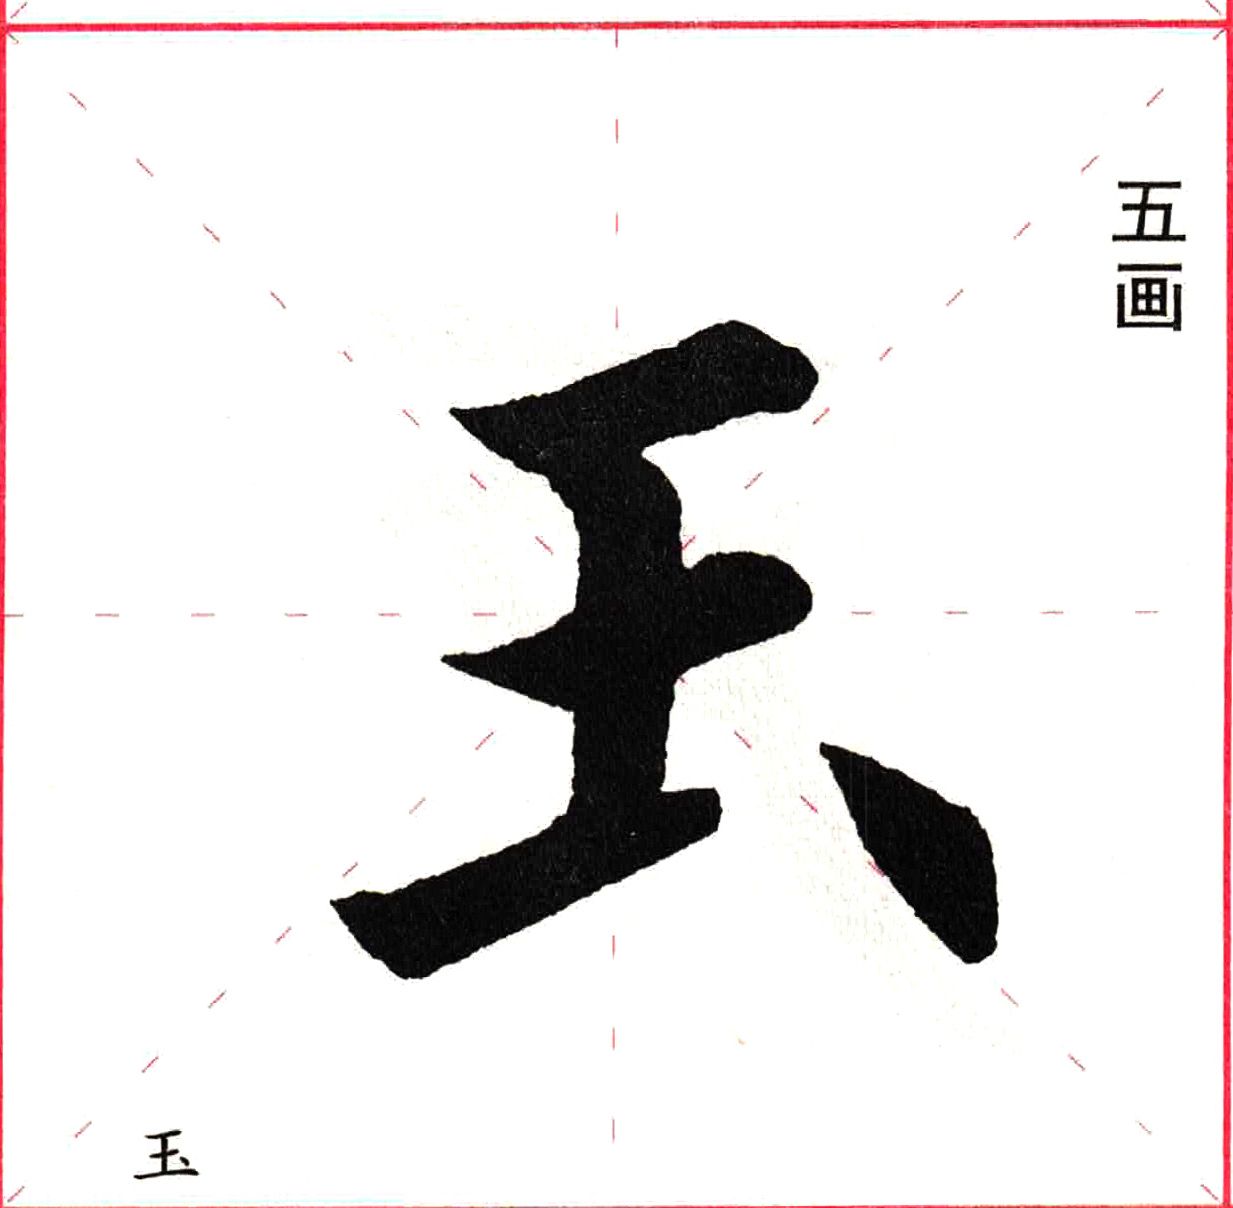 五画
玉
玉